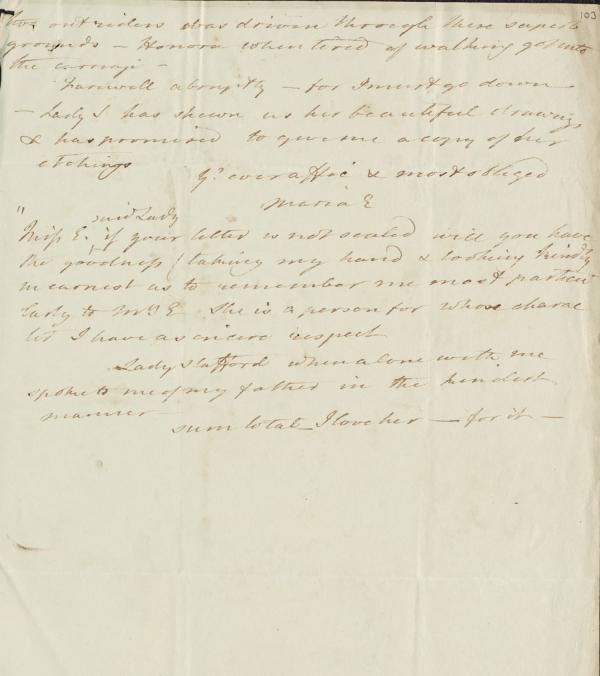 103
two outriders was driven through these superb
grounds — Honora when tired of walking got into
the carriage —
Farewell abruptly — for I must go down
— Lady S has shewn us her beautiful drawings
& has promised to give me a copy of her
etchings
Yr. ever affec & most obliged
Maria E
said Lady
"Miss E. if your letter is not sealed will you have
the goodness (taking my hand & looking kindly
in earnest as to remember me most particu
larly to Mrs E She is a person for whose charac
ter I have a sincere respect
Lady Stafford when alone with me
spoke to me of my father in the kindest
manner —
sum total — I love her — for it —